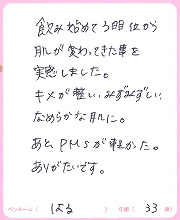 飲み始めて3日位から
肌が変わってきた事を
実感しました。
キメが整い、みずみずしい、
なめらかな肌に。
あと、PMSが軽かった。
ありがたいです。
ペンネーム( はる ) 年齢( 33 歳)